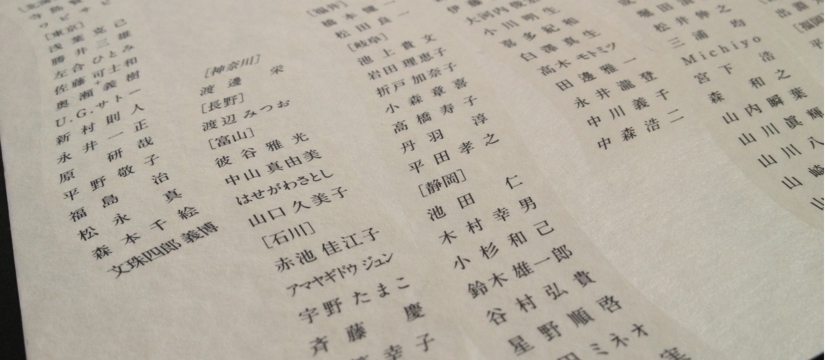 [東京]
浅葉克己
勝井三雄
左合ひとみ
佐藤可士和
奥瀬義樹
U.G.サトー
新村則人
永井一正
原研哉
平野敬子
福島治
松永真
森本千絵
文珠四郎 義博
[神奈川]
渡邊栄
[長野]
渡辺みつお
[富山]
波谷雅光
中山真由美
はせがわさとし
山口久美子
[石川]
赤池佳江子
アマヤギドウ ジュン
宇野たまこ
斉藤慶
幸子
松田良一
[岐阜]
池上貴文
岩田理恵子
折戸加奈子
小森章喜
高橋寿子
丹羽淳
平田孝之
[静岡]
池田仁
木村幸男
小杉和己
鈴木雄一郎
谷村弘貴
星野順啓
ミネオ
大河内俊
小川明生
喜多紀和
白澤真生
高木モトミツ
田邊雅一
永井瀧登
中川義子
中森浩二
松井伸之
三浦均
Michiyo
宮下浩
森和之
山内瞬葉
山川眞輝
山川八
山崎
山